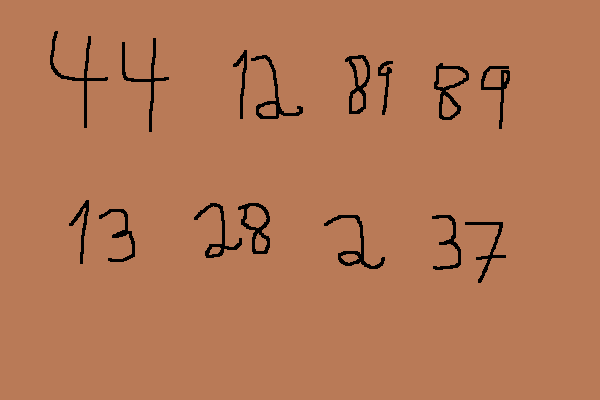 44 12 89 89
13 28 2 37